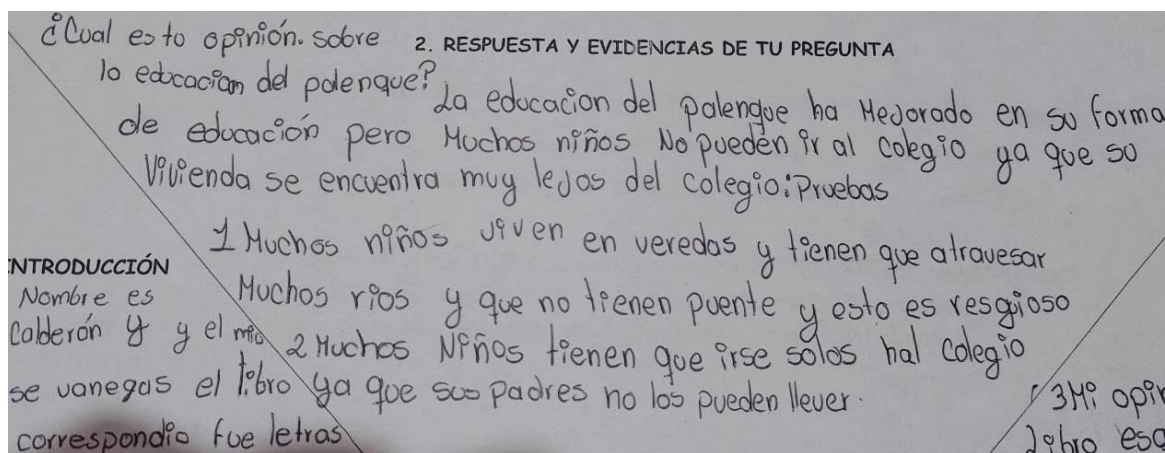 ¿Cual es tu opinión. sobre
2. RESPUESTA Y EVIDENCIAS DE TU PREGUNTA
la educacian del palenque?
La educacion del palenque ha Mejorado en su forma
de educación pero Muchos niños No pueden ir al colegio ya que su
Vivienda se encuentra muy lejos del colegio: Pruebas
1 Muchos niños viven en veredas y tienen que atravesar
Muchos rios y que no tienen puente y esto es resgioso
2 Muchos Niños tienen que irse solos hal colegio
ya que sus padres no los pueden llever.
INTRODUCCIÓN
Nombre es
Calderón y y el mio
se vanegas el libro
correspondio fue letras
3 Mi opin
libro esc